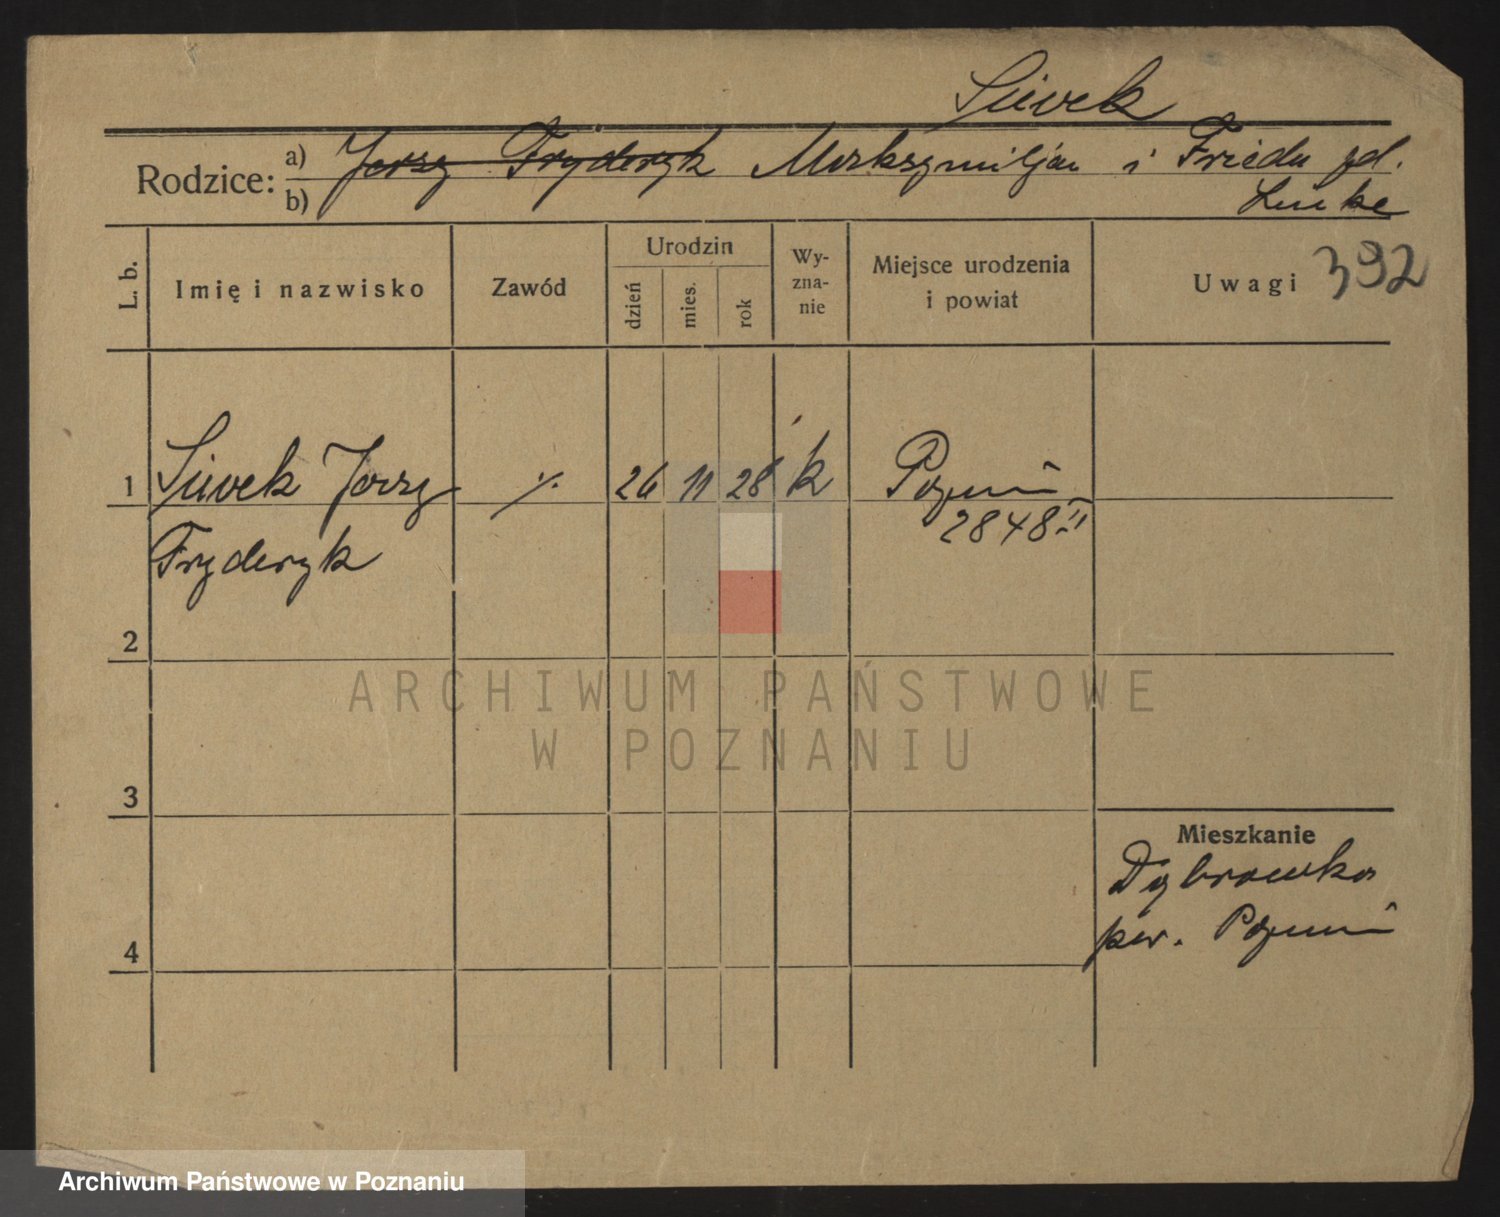 Siwek
Rodzice: a) Jerzy Fryderyk Maksymiljan i Frieda zd.
b) Linke
L. b. Imię i nazwisko Zawód Urodzin dzień mies. rok Wy-zna-nie Miejsce urodzenia i powiat Uwagi 392
1 Siwek Jerzy ./. 26 11 28 k Poznań
Fryderyk 2848 II
2
ARCHIWUM PAŃSTWOWE
W POZNANIU
3
Mieszkanie
Dąbrowka
pow. Poznań
4
Archiwum Państwowe w Poznaniu